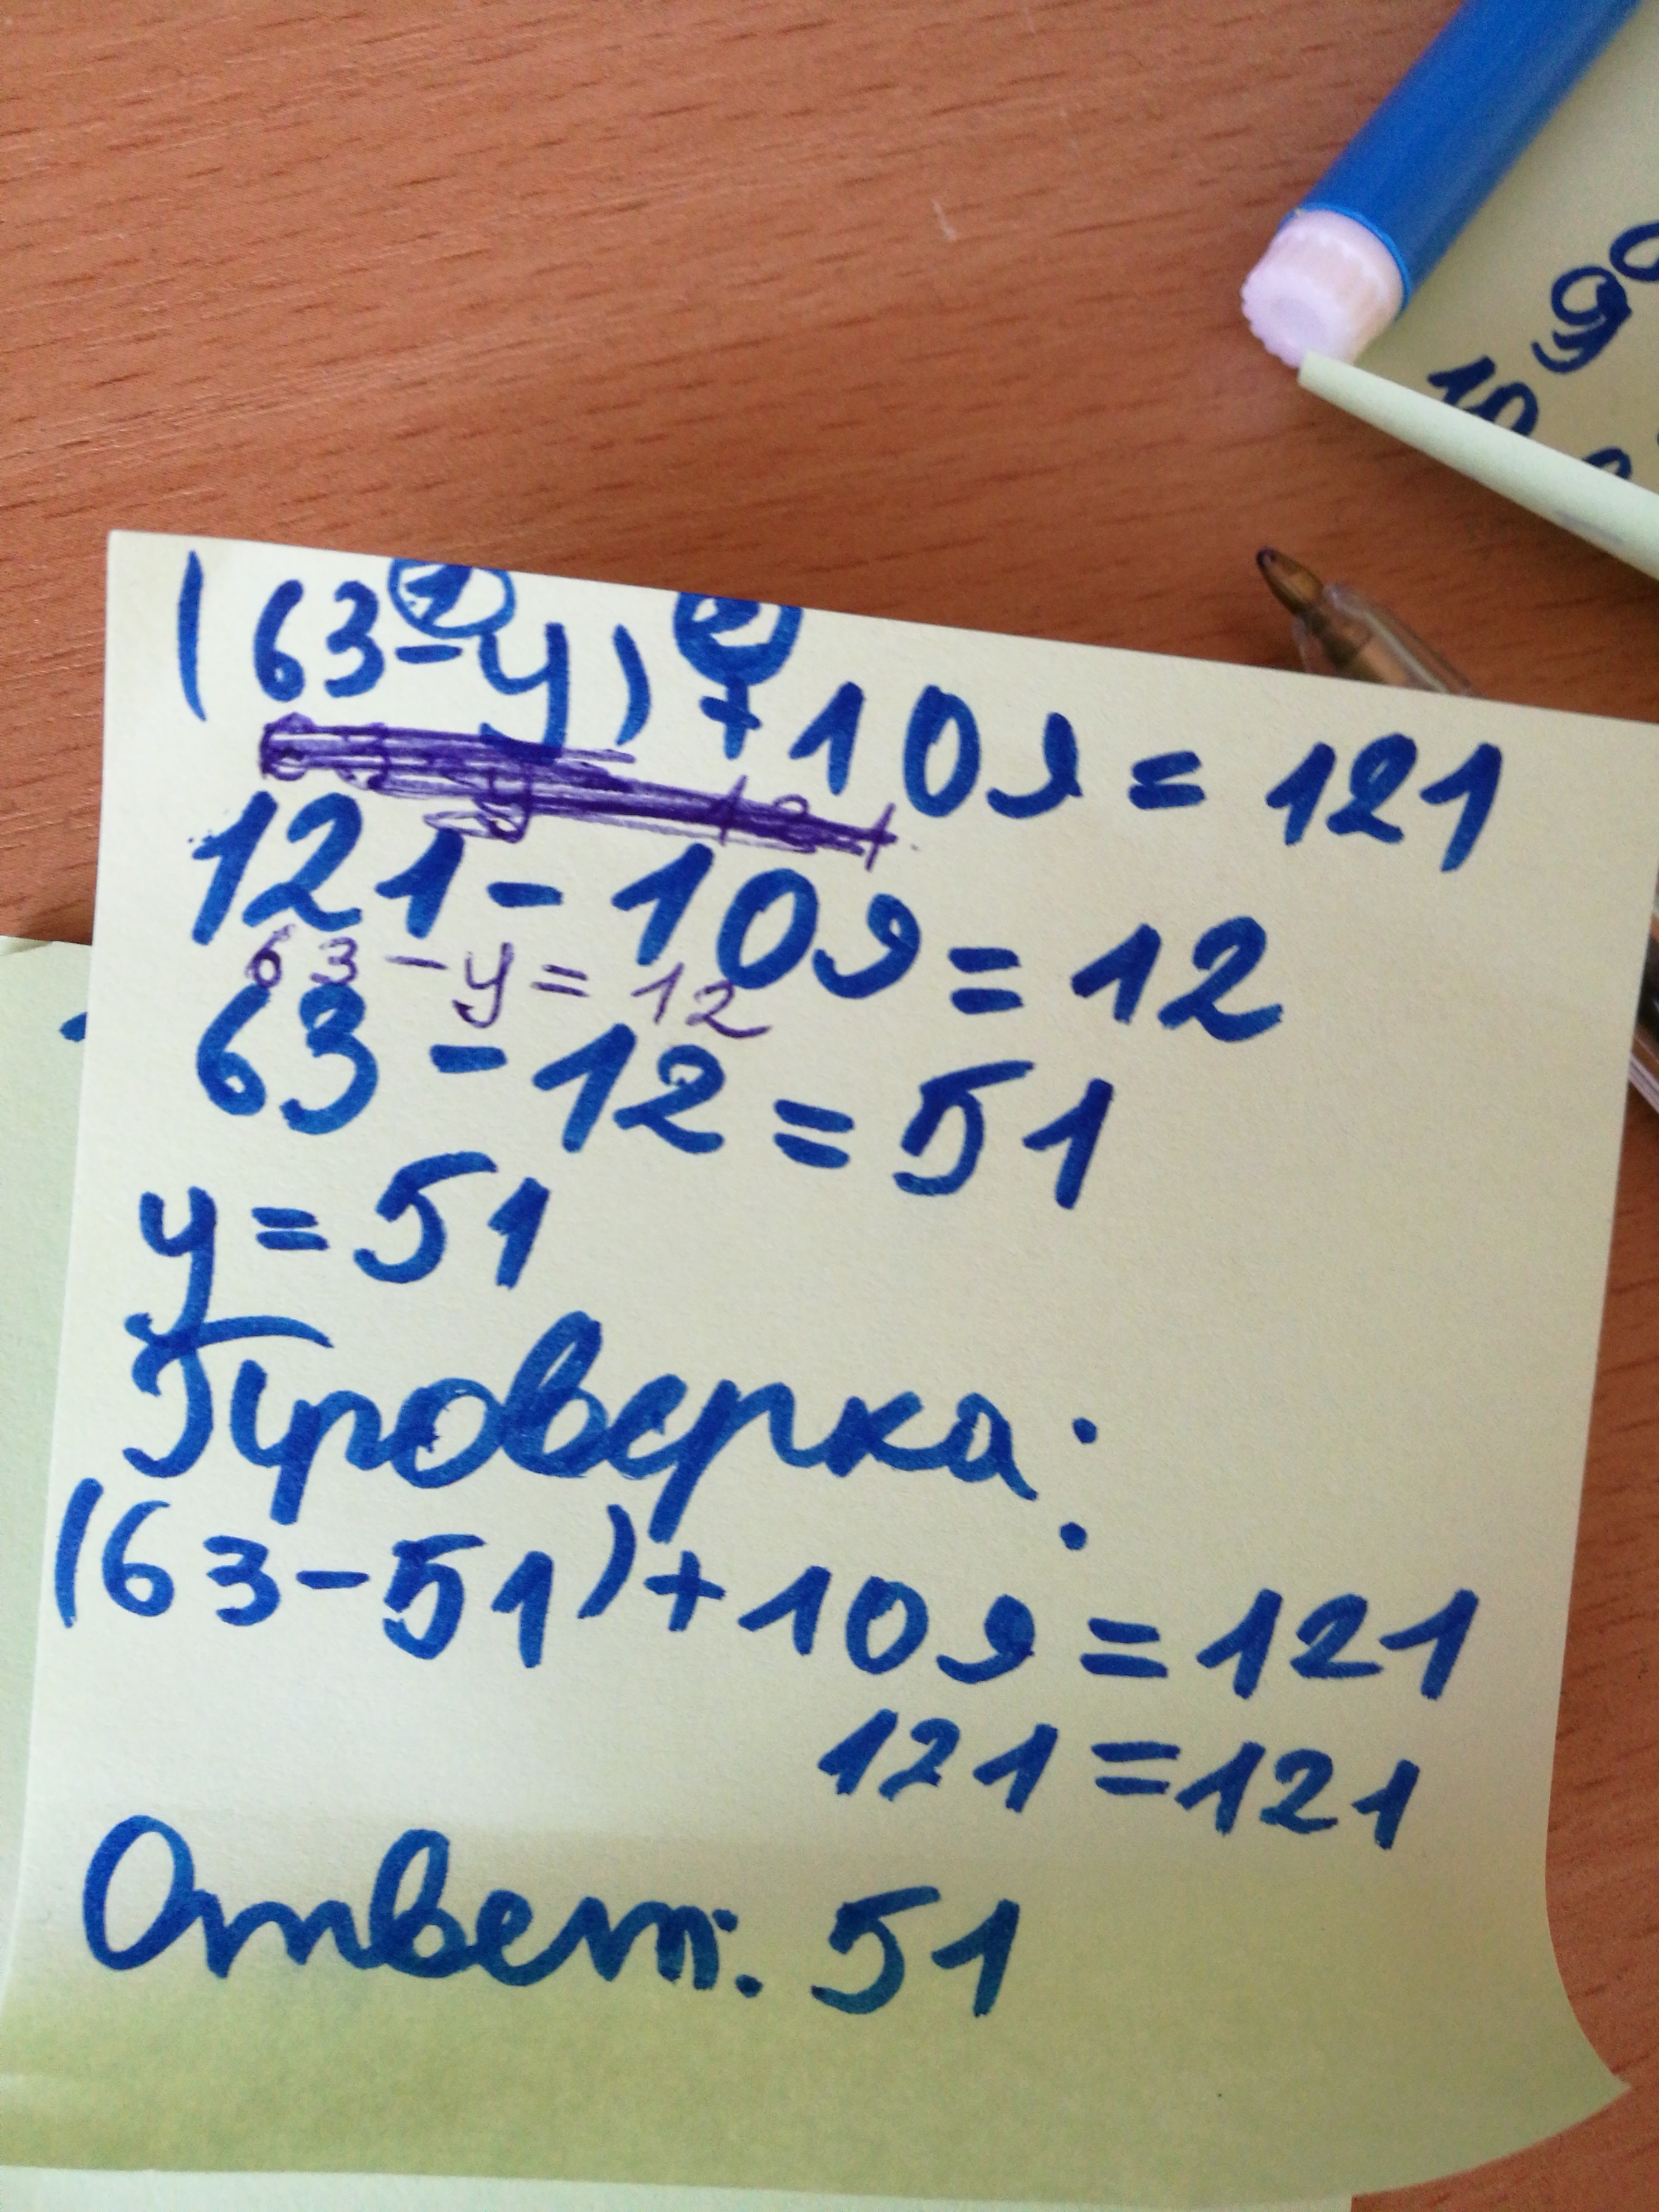 1 2
(63-y)+109=121
121-109=12
63-y=12
63-12=51
y=51
Проверка:
(63-51)+109=121
121=121
Ответ: 51
9
10